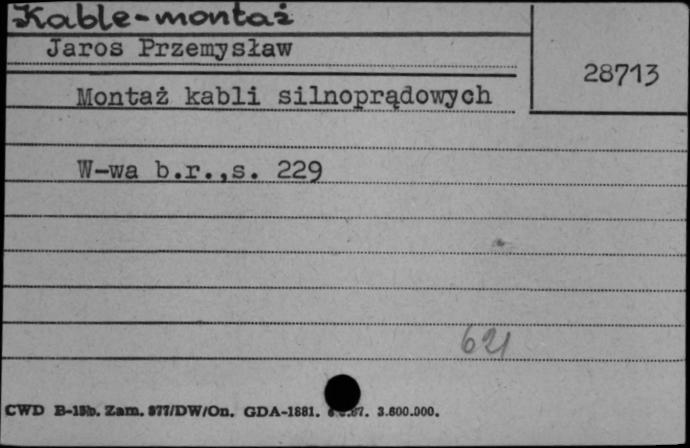 Kable-montaż
Jaros Przemysław
28713
Montaż kabli silnoprądowych
W-wa b.r.,s. 229
621
CWD B-15b. Zam. 877/DW/On. GDA-1881. 3.600.000.